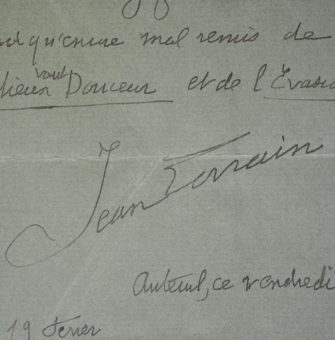 qu'encore mal remis de
vaut
Douceur et de l'Évasi
Jean Lorrain
Auteuil, ce vendredi
19 février